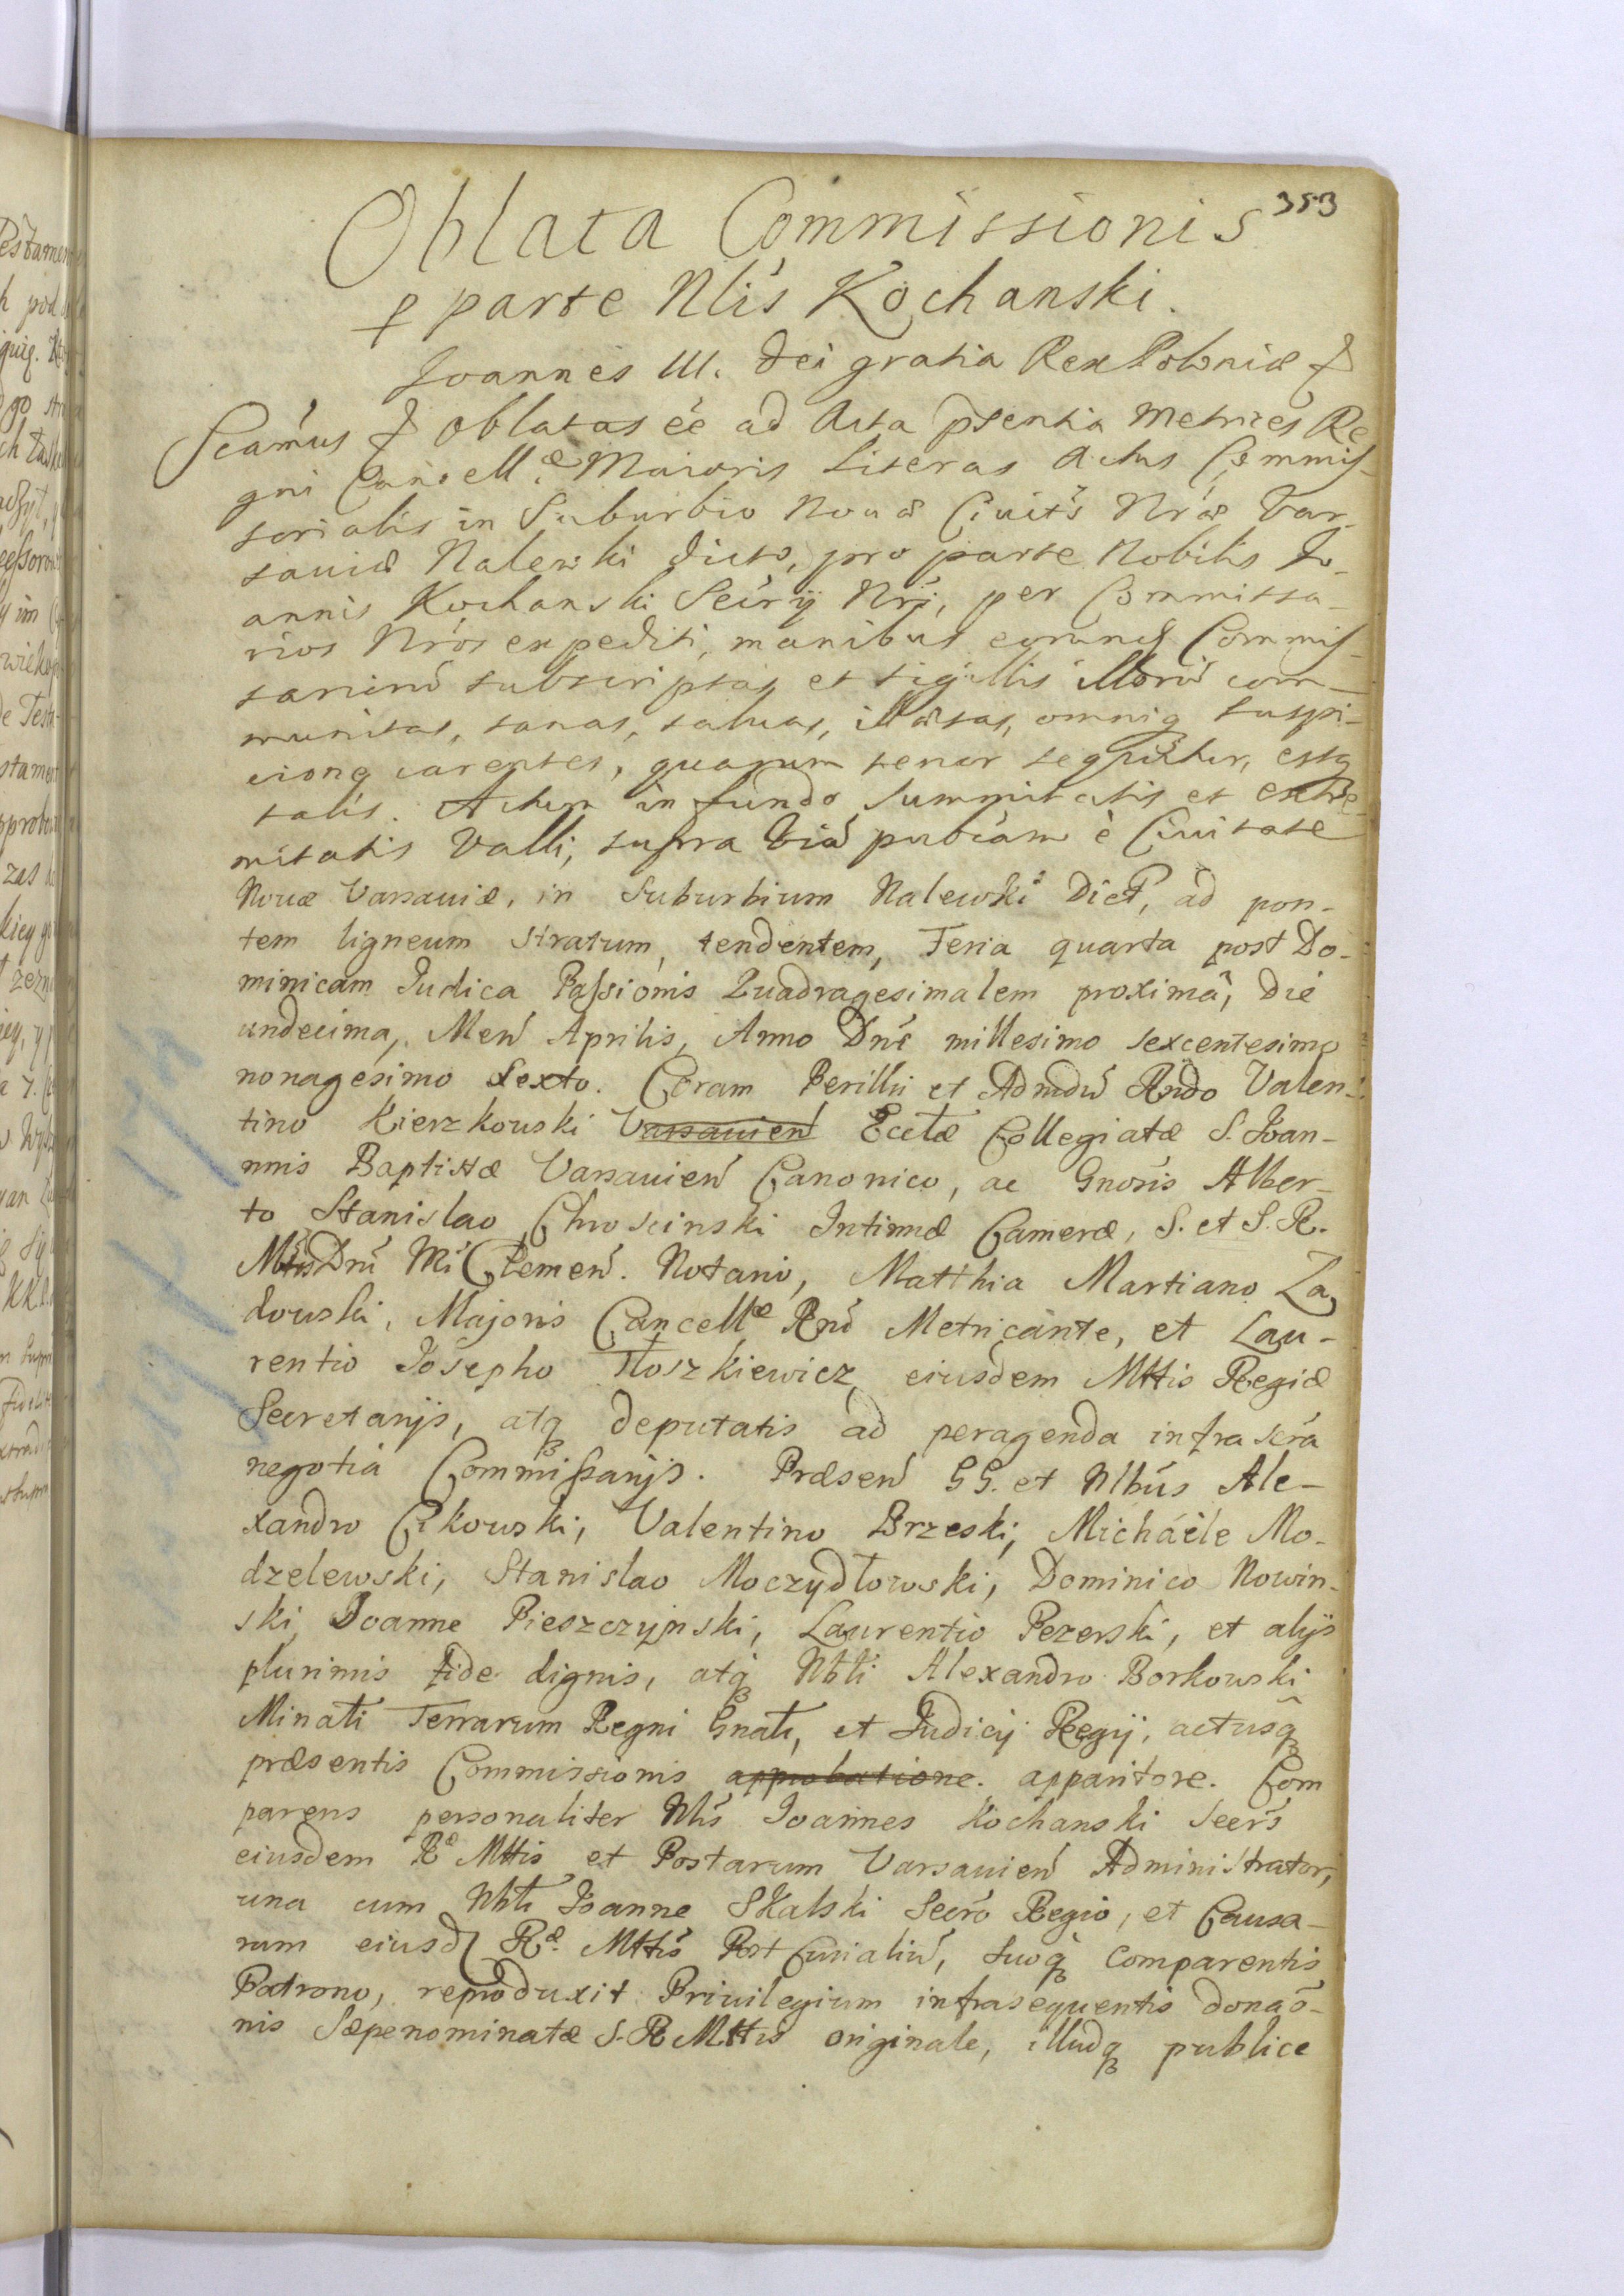 353
Oblata Commissionis
p parte Nlis Kochanski.
Joannes III. Dei gratia Rex Poloniæ &
Scamus & oblatas ee ad Acta pſentia Metrices Re
gni Cancell.æ Maioris Literas Actus Commiſ-
sorialis in Suburbio Nouæ Ciuitis Nræ Var-
sauiæ Nalewki dicto, pro parte Nobilis Jo-
annis Kochanski Secrij Nri, per Commissa-
rios Nros expediti, manibus eorund Commiſ-
sariorū subscriptas et sigillis illorū com-
munitas, sanas, saluas, illæsas, omniq suspi-
cione carentes, quarum tenor sequitur, estq
talis. Actum in fundo Summitatis et extre-
mitatis Valli, supra Viā publcam è Ciuitate
Nouæ Varsauiæ, in Suburbium Nalewki Dict, ad pon-
tem ligneum stratum, tendentem, Feria quarta post Do-
minicam Judica Paſsionis Quadragesimalem proximā, Die
undecima, Men Aprilis, Anno Dne millesimo sexcentesimo
nonagesimo Sexto. Coram Perillri et Admdu Rndo Valen-
tino Kierzkowski Varsauien Ecclæ Collegiatæ S. Joan-
nnis Baptistæ Varsauien Canonico, ac Gnosis Alber-
to Stanislao Chroscinski Intimæ Cameræ, S. et S. R.
Mttis Dni Mi Clemen. Notario, Matthia Martiano La
dowski, Majoris Cancellæ Rni Metricante, et Lau-
rentio Josepho Tłoszkiewicz, eiusdem Mttis Regiæ
Secretarijs, atq deputatis ad peragenda infra scra
negotia Commiſsarijs. Præsen GG. et Nlbus Ale-
xandro Cikowski, Valentino Brzeski, Michaële Mo-
dzelewski, Stanislao Moczydłowski, Dominico Nowin-
ski, Joanne Pieszczynski, Laurentio Pezerski, et alijs
plurimis fide dignis, atq Nbli Alexandro Borkowski
Minatl Terrarum Regni Gnali, et Judicij Regij, actusq
præsentis Commissionis approbatione. apparitore. Com
parens personaliter Nlis Joannes Kochanski Secrs
eiusdem Ræ Mttis et Postarum Varsauien Administrator,
una cum Nbli Joanne Skalski Secro Regio, et Causa-
rum eiusd Ræ. Mttis Post Curialiū, suoq comparentis
Patrono, reproduxit Priuilegium infrasequentis donao-
nis Sæpenominatæ S. R Mttis originale, illudq publice